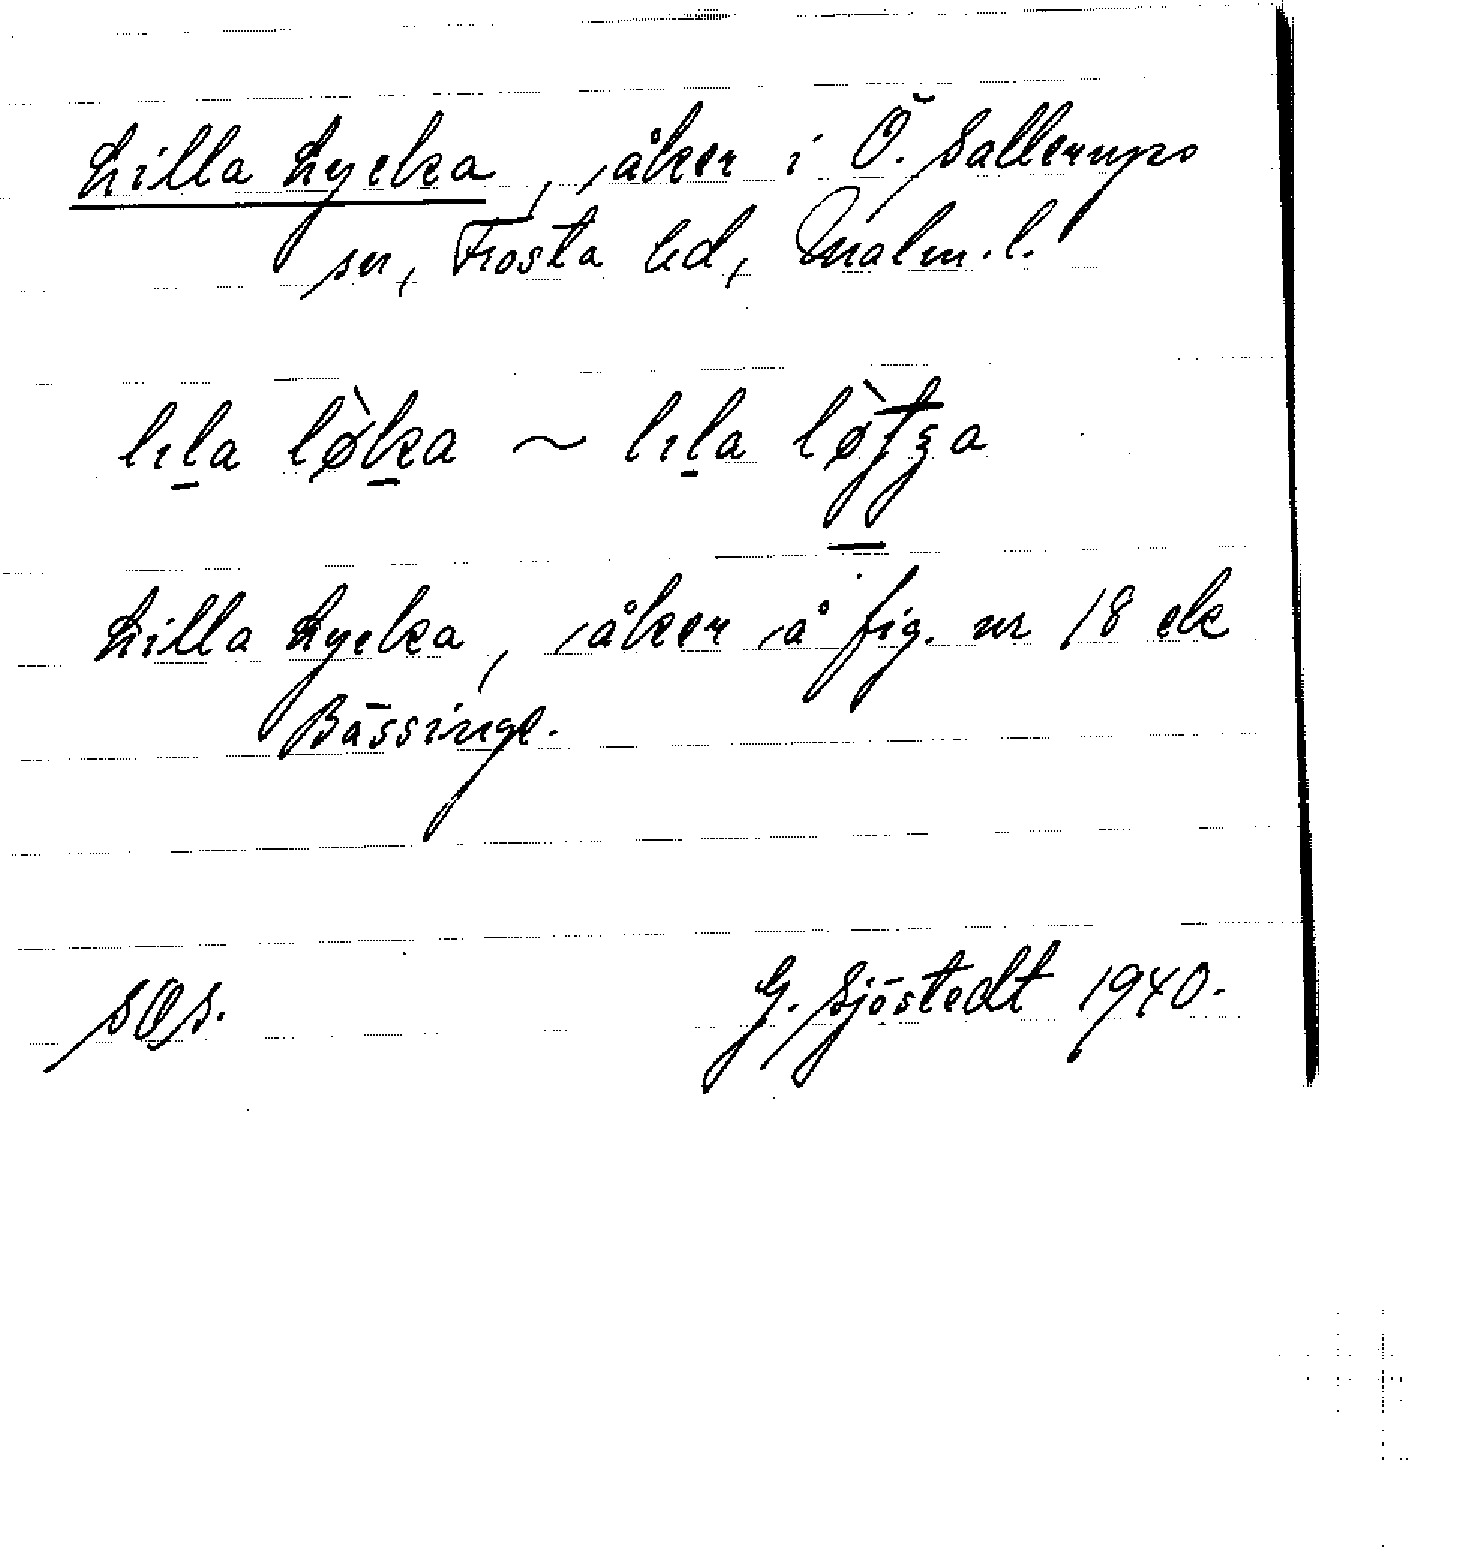 Lilla Lycka, åker i Ö. Sallerups
sn, Frosta hd, Malm.l.
lıla lø̀ka ~ lıla
Lilla Lycka, åker å fig. nr 18 ek
Bässinge.
SOS. G. Sjöstedt 1940.